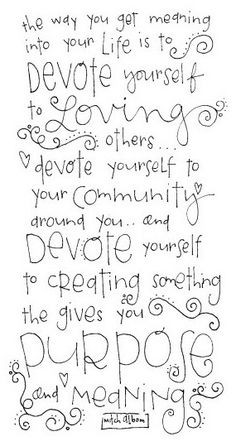 the way you get meaning
into your Life is to
DEVOTE yourself
to Loving
others...
devote yourself to
your Community
around you.. and
DEVOTE yourself
to creating something
the gives you
purpose
and meaning
mitch albom